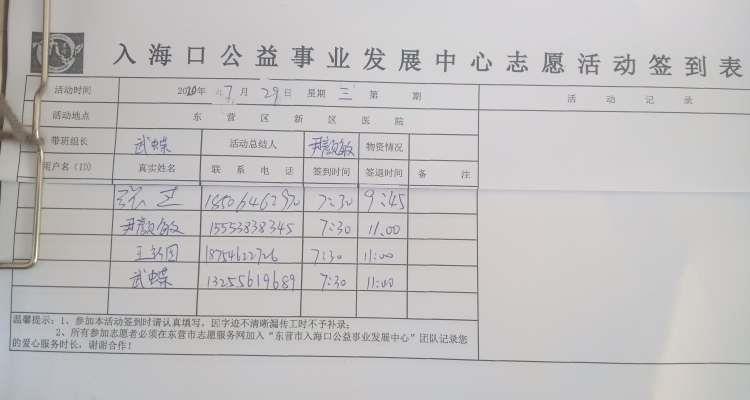 入海口公益事业发展中心志愿活动签到表
活动时间 2020年 7月 29日 星期 三 第 期 活动记录
活动地点 东营区新区医院
带班组长 武蝶 活动总结人 尹颜敏 物资情况
用户名（ID） 真实姓名 联系电话 签到时间 签退时间 备注
7:30 9:45
尹颜敏 15553838345 7:30 11.00
18754622726 7:30 11:00
武蝶 13255619689 7:30 11:00
温馨提示：1、参加本活动签到时请认真填写，因字迹不清晰漏传工时不予补录；
2、所有参加志愿者必须在东营市志愿服务网加入“东营市入海口公益事业发展中心”团队记录您
的爱心服务时长，谢谢合作！